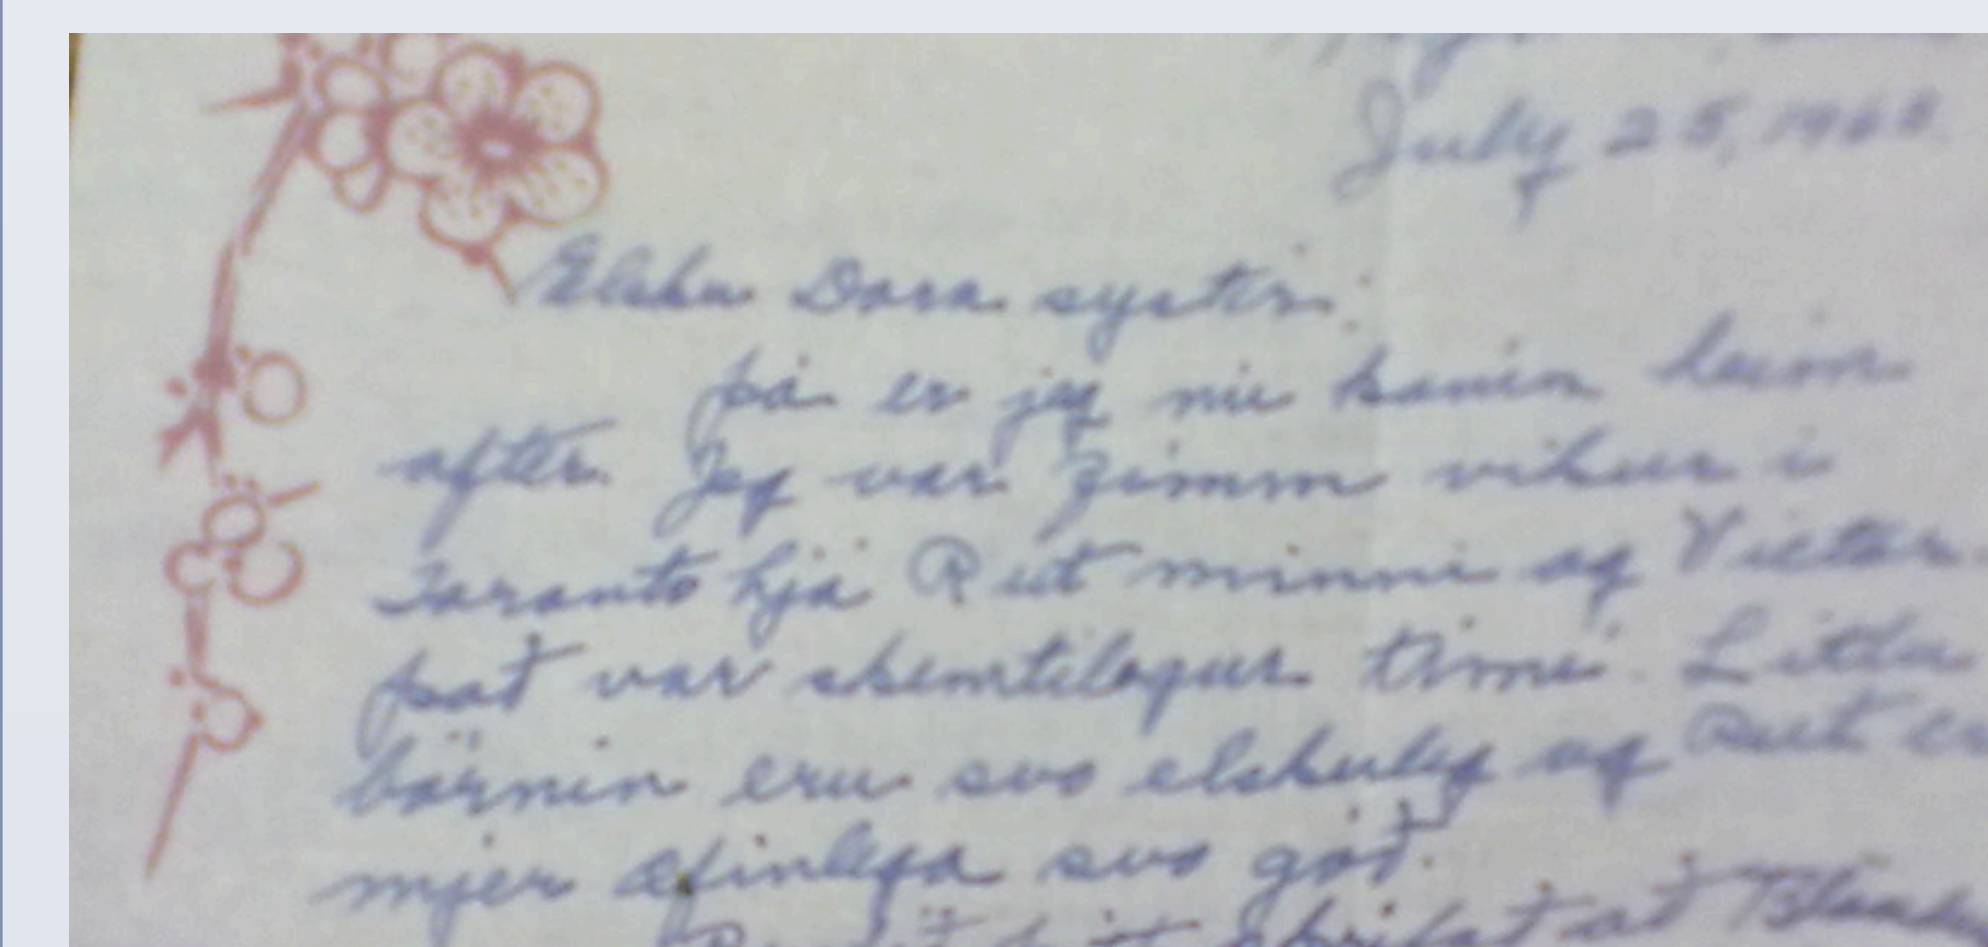 July 25, 1968
Elsku Dora systir.
þá er jeg nú komin heim
aftur. Jeg var fimm vikur í
Toronto hjá Rut minni og Victor.
það var skemtilegur tími. Litlu
börnin eru svo elskuleg og Rut er
mjer æfinlega svo góð.
skrifat at